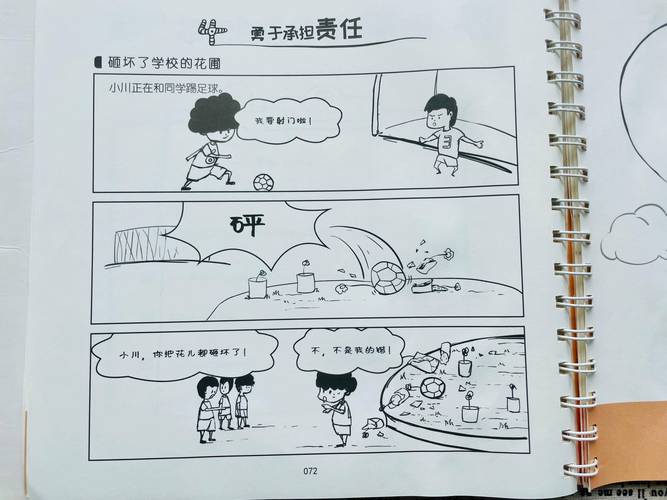 勇于承担责任
砸坏了学校的花圃
小川正在和同学踢足球。
我要射门啦！
3
砰
小川，你把花儿都砸坏了！
不，不是我的错！
072
you'll see me